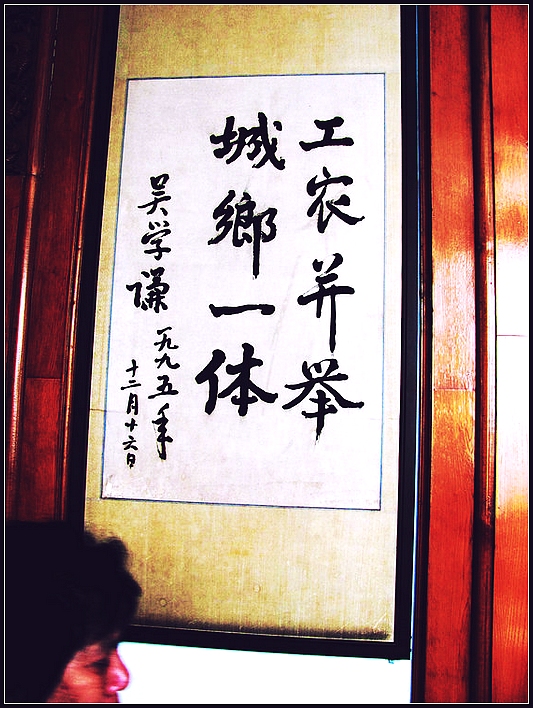 工农并举
城鄉一体
吴学谦 一九九五年
十二月十六日